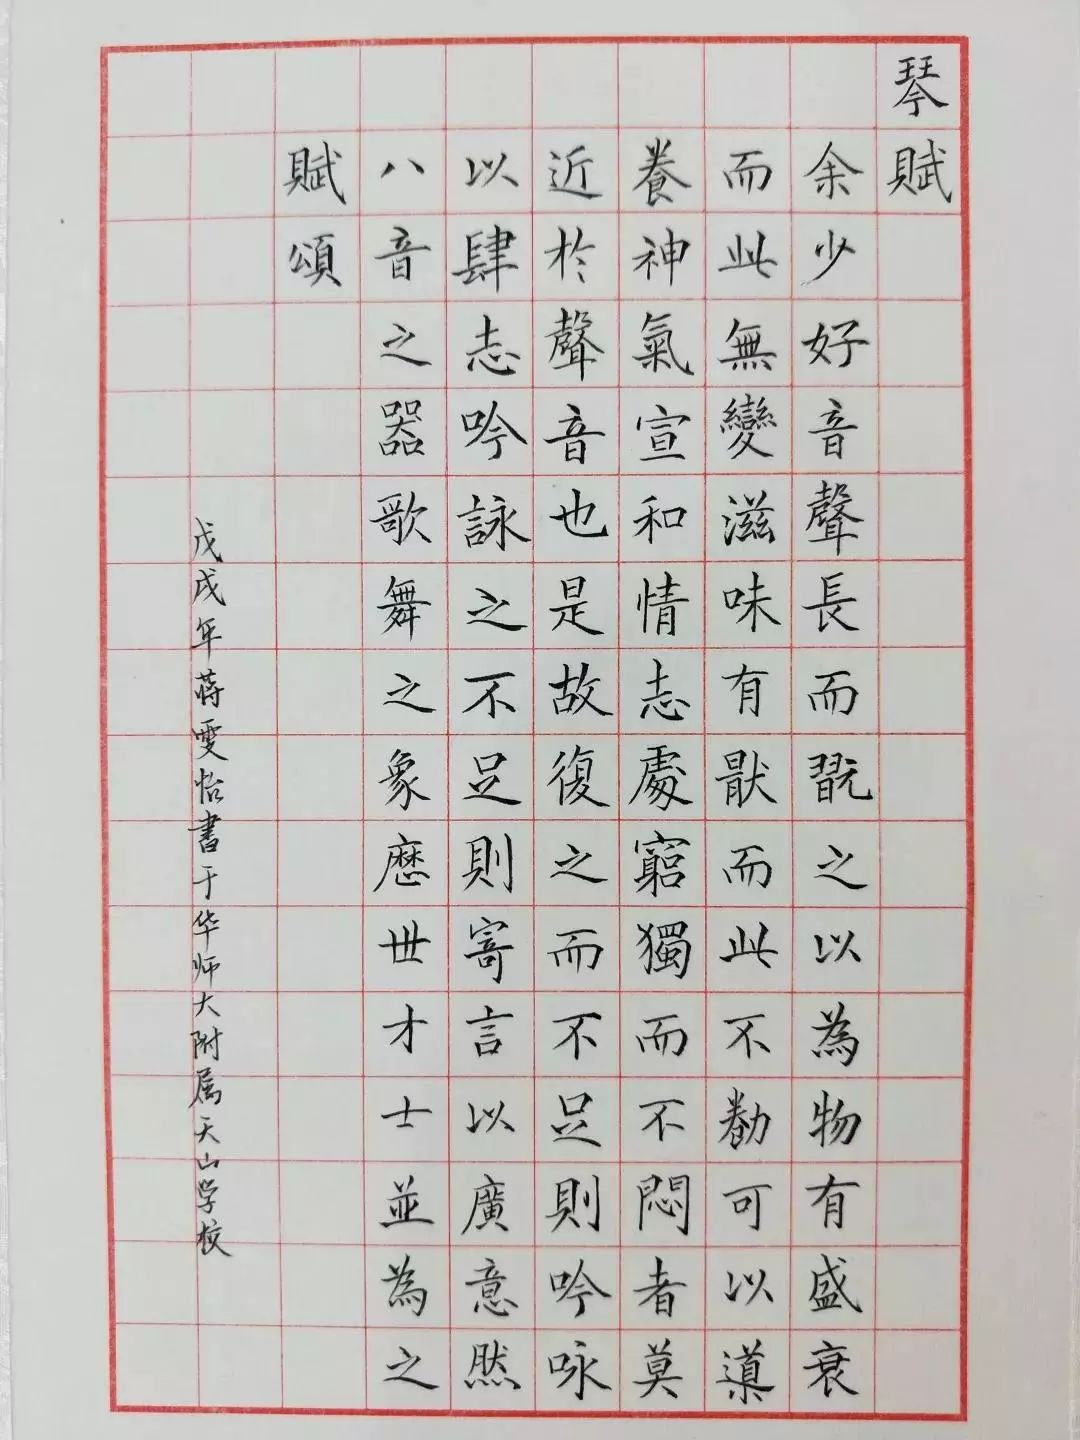 琴賦
余少好音聲長而翫之以為物有盛衰
而此無變滋味有猒而此不勌可以導
養神氣宣和情志處窮獨而不悶者莫
近於聲音也是故復之而不足則吟咏
以肆志吟詠之不足則寄言以廣意然
八音之器歌舞之象歷世才士並為之
賦頌
戊戌年蔣雯怡書于华师大附属天山学校